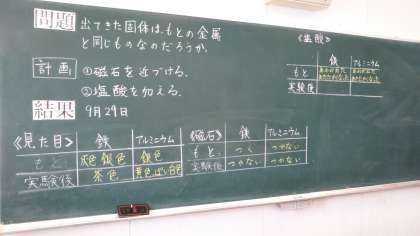 問題 出てきた固体は、もとの金属
と同じものなのだろうか。
計画 ①磁石を近づける。
②塩酸を加える。
結果 9月29日
《見た目》 鉄 アルミニウム
もと、 灰色 銀色 銀色
実験後 茶色 黄色っぽい白色
《磁石》 鉄 アルミニウム
もと、 つく つかない
実験後 つかない つかない
《塩酸》
鉄 アルミニウム
もと
実験後